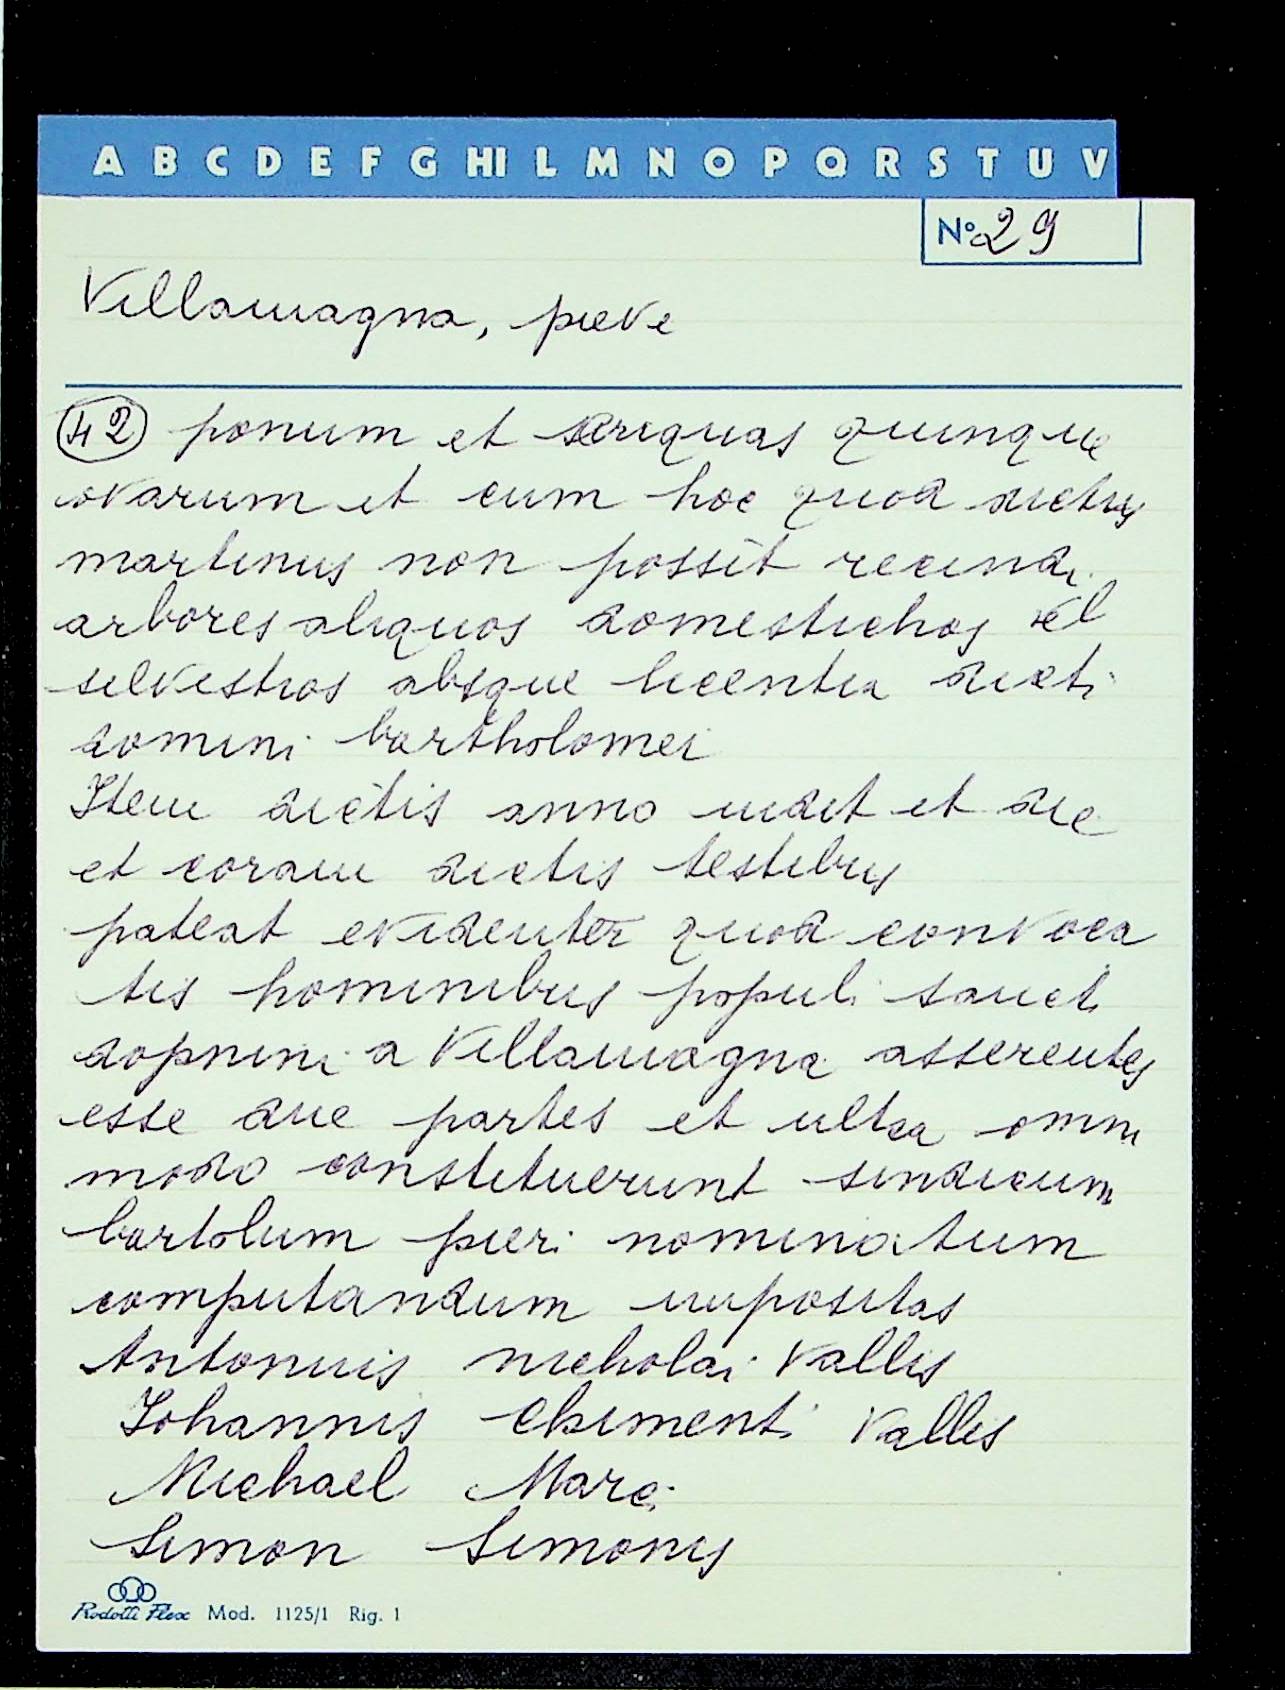 A B C D E F G HI L M N O P Q R S T U V
N° 29
Villamagna, pieve
42 ponum et seriquas quinque
ovarum et cum hoc quod dictus
martinus non possit recindi
arbores aliquos domestichos vel
silvestros absque licentia dicti
domini bartholomei
Item dictis anno indit et die
et coram dictis testibus
pateat evidenter quod convoca
tis hominibus populi sancti
dopnini a Villamagna asserentes
esse due partes et ultra omni
modo constituerunt sindicum
bartolum pieri nominatum
computandum impositas
Antonius nicholai Vallis
Johannis Chimenti Vallis
Michael Marci
Simon Simonis
Rodotti Flex Mod. 1125/1 Rig. 1